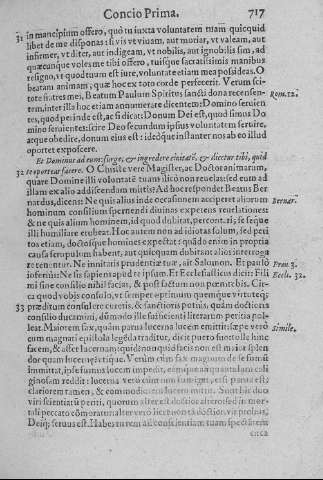 Concio Prima. 717
31 in mancipium offero, quò tu iuxta voluntatem tuam quicquid
libet de me disponas: si vis ve viuam, aut moriar, vt valeam, aut
infirmer, vt diter, aut indigeam, vt nobilis, aut ignobilis sim, ad
quæcunque voles me tibi offero, tuisque sacratissimis manibus
resigno, vt quod tuum est iure, voluntate etiam mea possideas. O
beatam animam, quæ hoc ex toto corde perfecerit. Verum sci-
tote fratres mei, Beatum Paulum Spiritus sancti dona recensen- Rom. 12.
tem, inter illa hoc etiam annumerare dicentem: Domino seruien
tes, quod perinde est, ac si dicat: Donum Dei est, quod simus Do
mino seruientes: scire Deo secundum ipsius voluntatem seruire,
atque obedire, donum eius est: ideóque instanter nos ab eo illud
oportet exposcere.
Et Dominus ad eum: surge, & ingredere ciuitatē, & dicetur tibi, quid
32 te oporteat facere. O Christe vere Magister, ac Doctor animarum,
quare Domine illi voluntatē tuam illicò non reuelas, sed eum ad
illam ex alio addiscendam mittis? Ad hoc respondet Beatus Ber
nardus, dicens: Ne quis alius inde occasionem acciperet aliorum Bernar.
hominum consilium spernendi diuinas expetens reuelationes:
& ne quis alium hominem, id quod dubitat, percontari, & sequi
illi humiliare erubeat. Hoc autem non ad idiotas solum, sed peri
tos etiam, doctosque homines expectat: quādo enim in propria
causa scrupulum habent, aut quicquam dubitant alios interroga
re tenentur. Ne innitaris prudentiæ tuæ, ait Salomon. Et paulò Prou. 3.
inferiùs: Ne sis sapiens apud te ipsum. Et Ecclesiasticus dicit: Fili Eccli. 32.
mi sine consilio nihil facias, & post factum non pœnitebis. Cir-
ca quod vobis consulo, vt semper optimum quemque virtuteq;
33 præditum consulere curetis, & sanctioris potiùs, quàm doctioris
consilio ducamini, dūmodo ille sufficienti litterarum peritia pol-
leat. Maiorem fax, quàm parua lucerna lucem emittit: sæpe verò Simile.
cum magnæ epistola legēda traditur, dicit puero suo: tolle hinc
facem, & affer lucernam: quid enim quòd facis non est maior splen
dor quàm lucernæ? Vtique. Verùm cùm fax magnum de se fumū
immittat, ipse fumus lucem impedit, eumque
ginosam reddit: lucerna verò cùm non fumiget, etsi parua est,
clariorem tamen, & commodiorem lucem mittit. Sunt hic duo
viri scientiarū periti, quorum alter est doctior, alter sed in mor-
tali peccato cōmoratur, alter verò licet non tā doctior, vir probus,
Deiq; seruus est. Habes tu rem ad conscientiæ tuam spectantem
circa